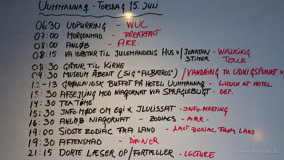 UUMMANNAQ - TORSDAG 15. JULI
06:30 UDPURRING - WUC
07:00 MORGENMAD - BREAKFAST
08:00 ANLØB - ARR
08:15 VA KØRTER TIL JULEMANDENS HUS v/ - WALKING TOUR
08:30 GÅTUR TIL KIRKE
09:30 MUSEUM ÅBENT (SIG "ALBATROS") /VANDRING TIL UDKIGSPUNKT
12-13 GRØNLANDSK BUFFET PÅ HOTEL UUMMANNAQ - LUNCH AT HOTEL
13:30 AFSEJLING MOD NIAQORNAT VIA SPRAGLEBUGT - DEP.
14:30 TEATIME
15:30 INFO-MØDE OM EQI & ILULISSAT - INFO-MEETING
16:30 ANLØB NIAQORNAT - ZODIACS - ARR -
19:00 SIDSTE ZODIAC FRA LAND - LAST ZODIAC FROM LAND
19:30 AFTENSMAD - DINNER
21:15 DORTE LÆSER OP/FORTÆLLER - LECTURE